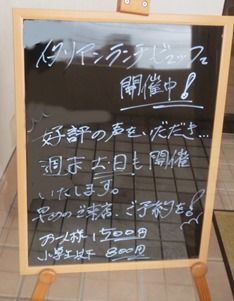 イタリアンランチビュッフェ
開催中!
好評の声をいただき…
週末土日も開催
いたします。
ご来店、ご予約を!
お一人様 1500円
小学生以下 800円